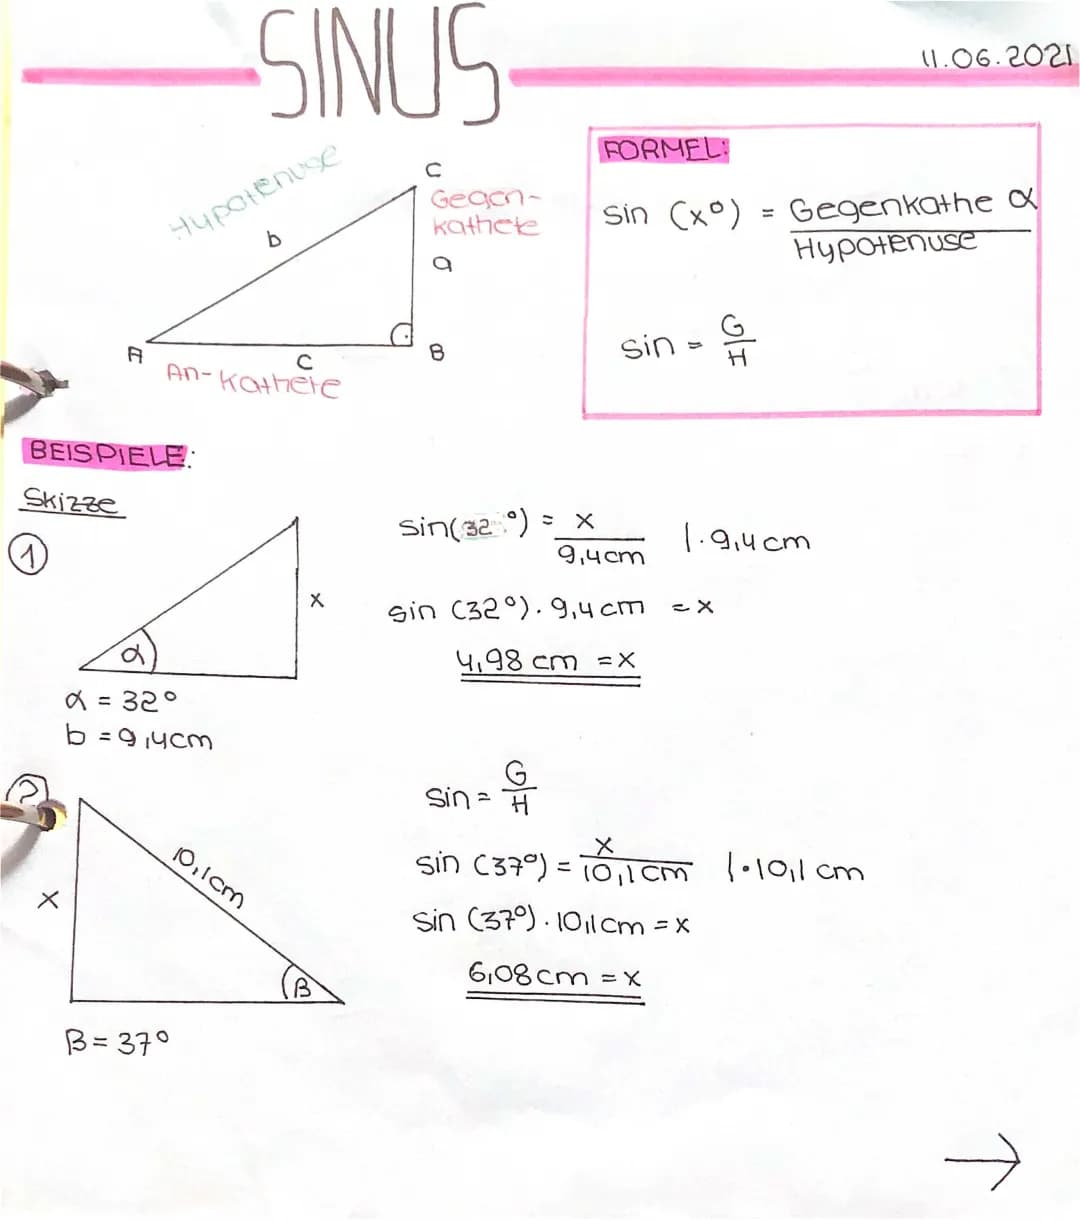 SINUS
11.06.2021
Hypotenuse
b
C
Gegen-
kathete
a
A
c
B
An-kathete
FORMEL:
sin (x°) = Gegenkathe α
Hypotenuse
sin = G
H
BEISPIELE:
Skizze
1
x
α
α = 32°
b = 9,4cm
sin(32°) = x
9,4cm
|·9,4cm
sin (32°)·9,4cm = x
4,98 cm = x
2
x
10,1cm
β
β = 37°
sin = G
H
sin (37°) = x
10,1cm
|·10,1cm
sin (37°)·10,1cm = x
6,08cm = x